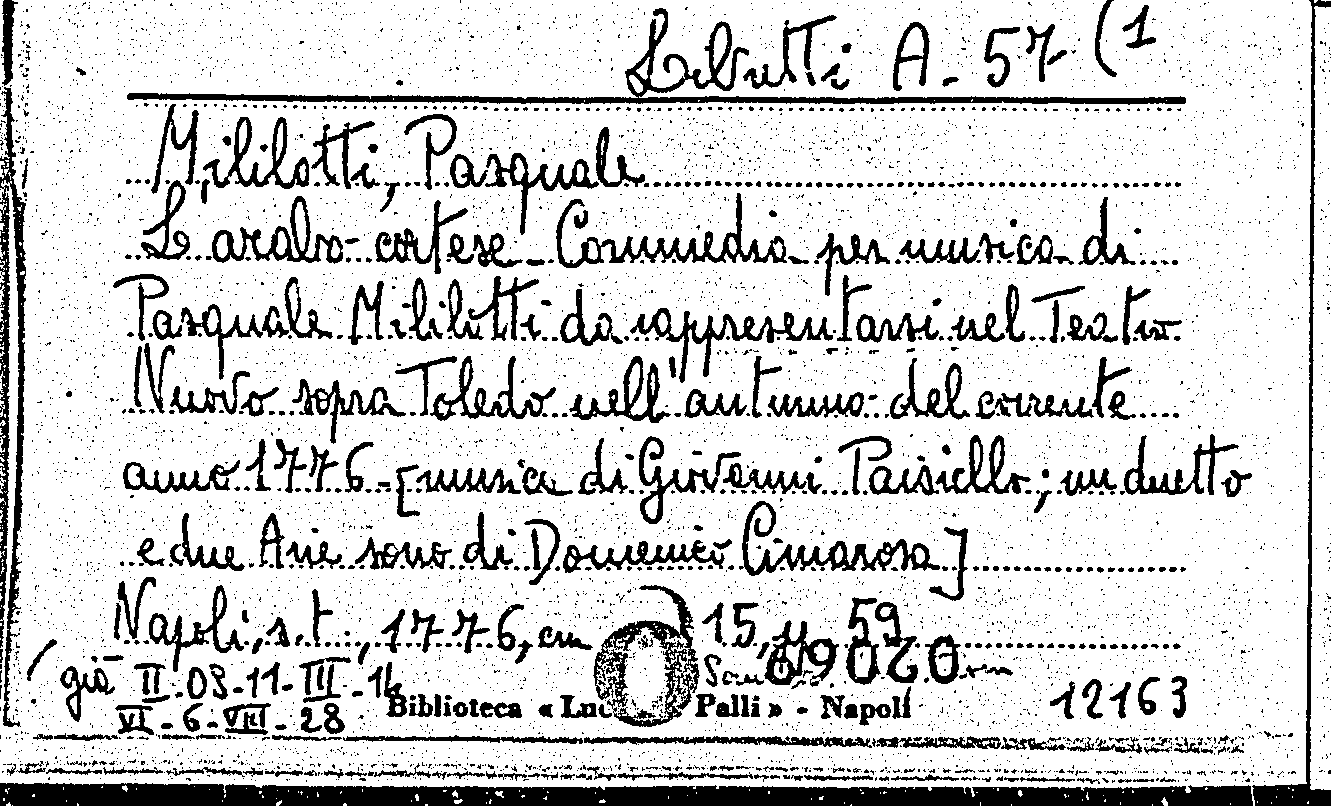 Libretti A. 57 (1
Mililotti, Pasquale
L'arabo cortese - Commedia per musica di
Pasquale Mililotti da rappresentarsi nel Teatro
Nuovo sopra Toledo nell'autunno del corrente
anno 1776 - [musica di Giovanni Paisiello; un duetto
e due Arie sono di Domenico Cimarosa]
Napoli, s.t., 1776, cm 15, p. 59
020690
già II-03-11-III-16
VI-6-VIII-28
Biblioteca « Luc Palli » - Napoli
12163